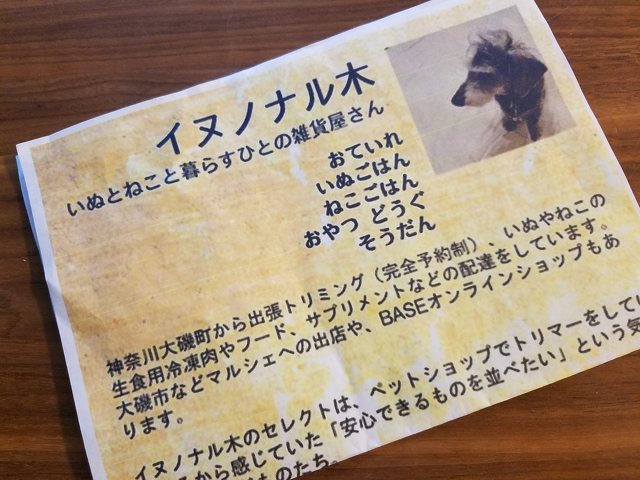 イヌノナル木
いぬとねこと暮らすひとの雑貨屋さん
おていれ
いぬごはん
ねこごはん
おやつ どうぐ
そうだん
神奈川大磯町から出張トリミング（完全予約制）、いぬやねこの
生食用冷凍肉やフード、サプリメントなどの配達をしています。
大磯市などマルシェへの出店や、BASEオンラインショップもあ
ります。
イヌノナル木のセレクトは、ペットショップでトリマーをしてい
から感じていた「安心できるものを並べたい」という気
ものたち。